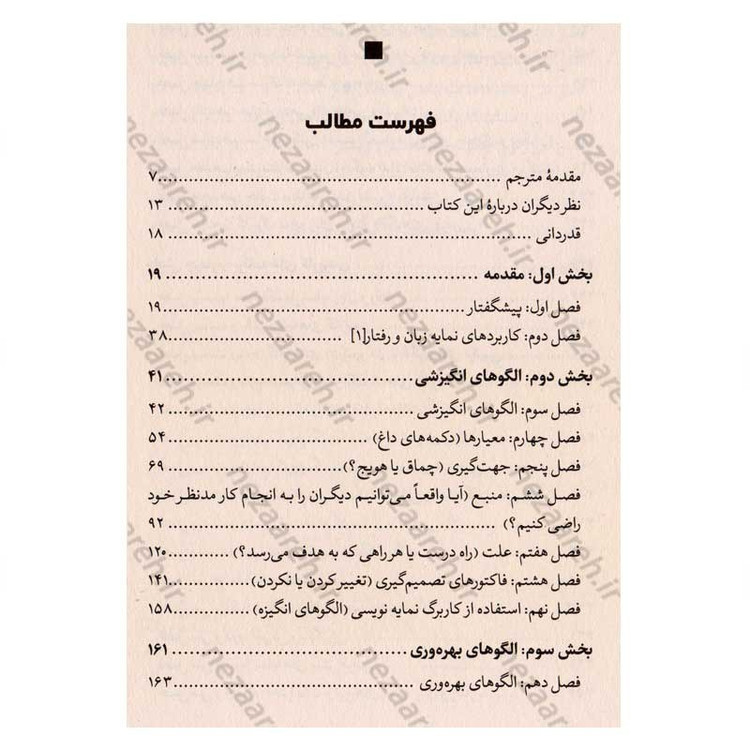 فهرست مطالب
مقدمهٔ مترجم ........ ۷
نظر دیگران دربارهٔ این کتاب ........ ۱۳
قدردانی ........ ۱۸
بخش اول: مقدمه ........ ۱۹
فصل اول: پیشگفتار ........ ۱۹
فصل دوم: کاربردهای نمایه زبان و رفتار[۱] ........ ۳۸
بخش دوم: الگوهای انگیزشی ........ ۴۱
فصل سوم: الگوهای انگیزشی ........ ۴۲
فصل چهارم: معیارها (دکمه‌های داغ) ........ ۵۴
فصل پنجم: جهت‌گیری (چماق یا هویج؟) ........ ۶۹
فصل ششم: منبع (آیا واقعاً می‌توانیم دیگران را به انجام کار مدنظر خود
راضی کنیم؟) ........ ۹۲
فصل هفتم: علت (راه درست یا هر راهی که به هدف می‌رسد؟) ........ ۱۲۰
فصل هشتم: فاکتورهای تصمیم‌گیری (تغییر کردن یا نکردن) ........ ۱۴۱
فصل نهم: استفاده از کاربرگ نمایه نویسی (الگوهای انگیزه) ........ ۱۵۸
بخش سوم: الگوهای بهره‌وری ........ ۱۶۱
فصل دهم: الگوهای بهره‌وری ........ ۱۶۳
nezaareh.ir